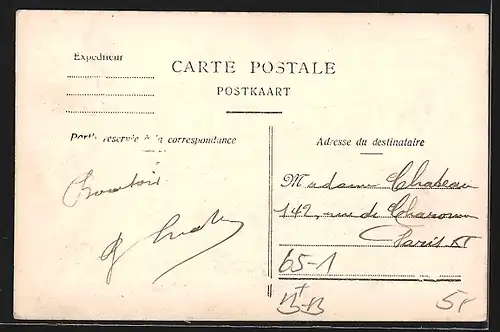 Expediteur
CARTE POSTALE
POSTKAART
Partie réservée à la correspondance
Adresse du destinataire
Madame Chateau
142, rue de Charonne
Paris XI
65-1
B-B
5f